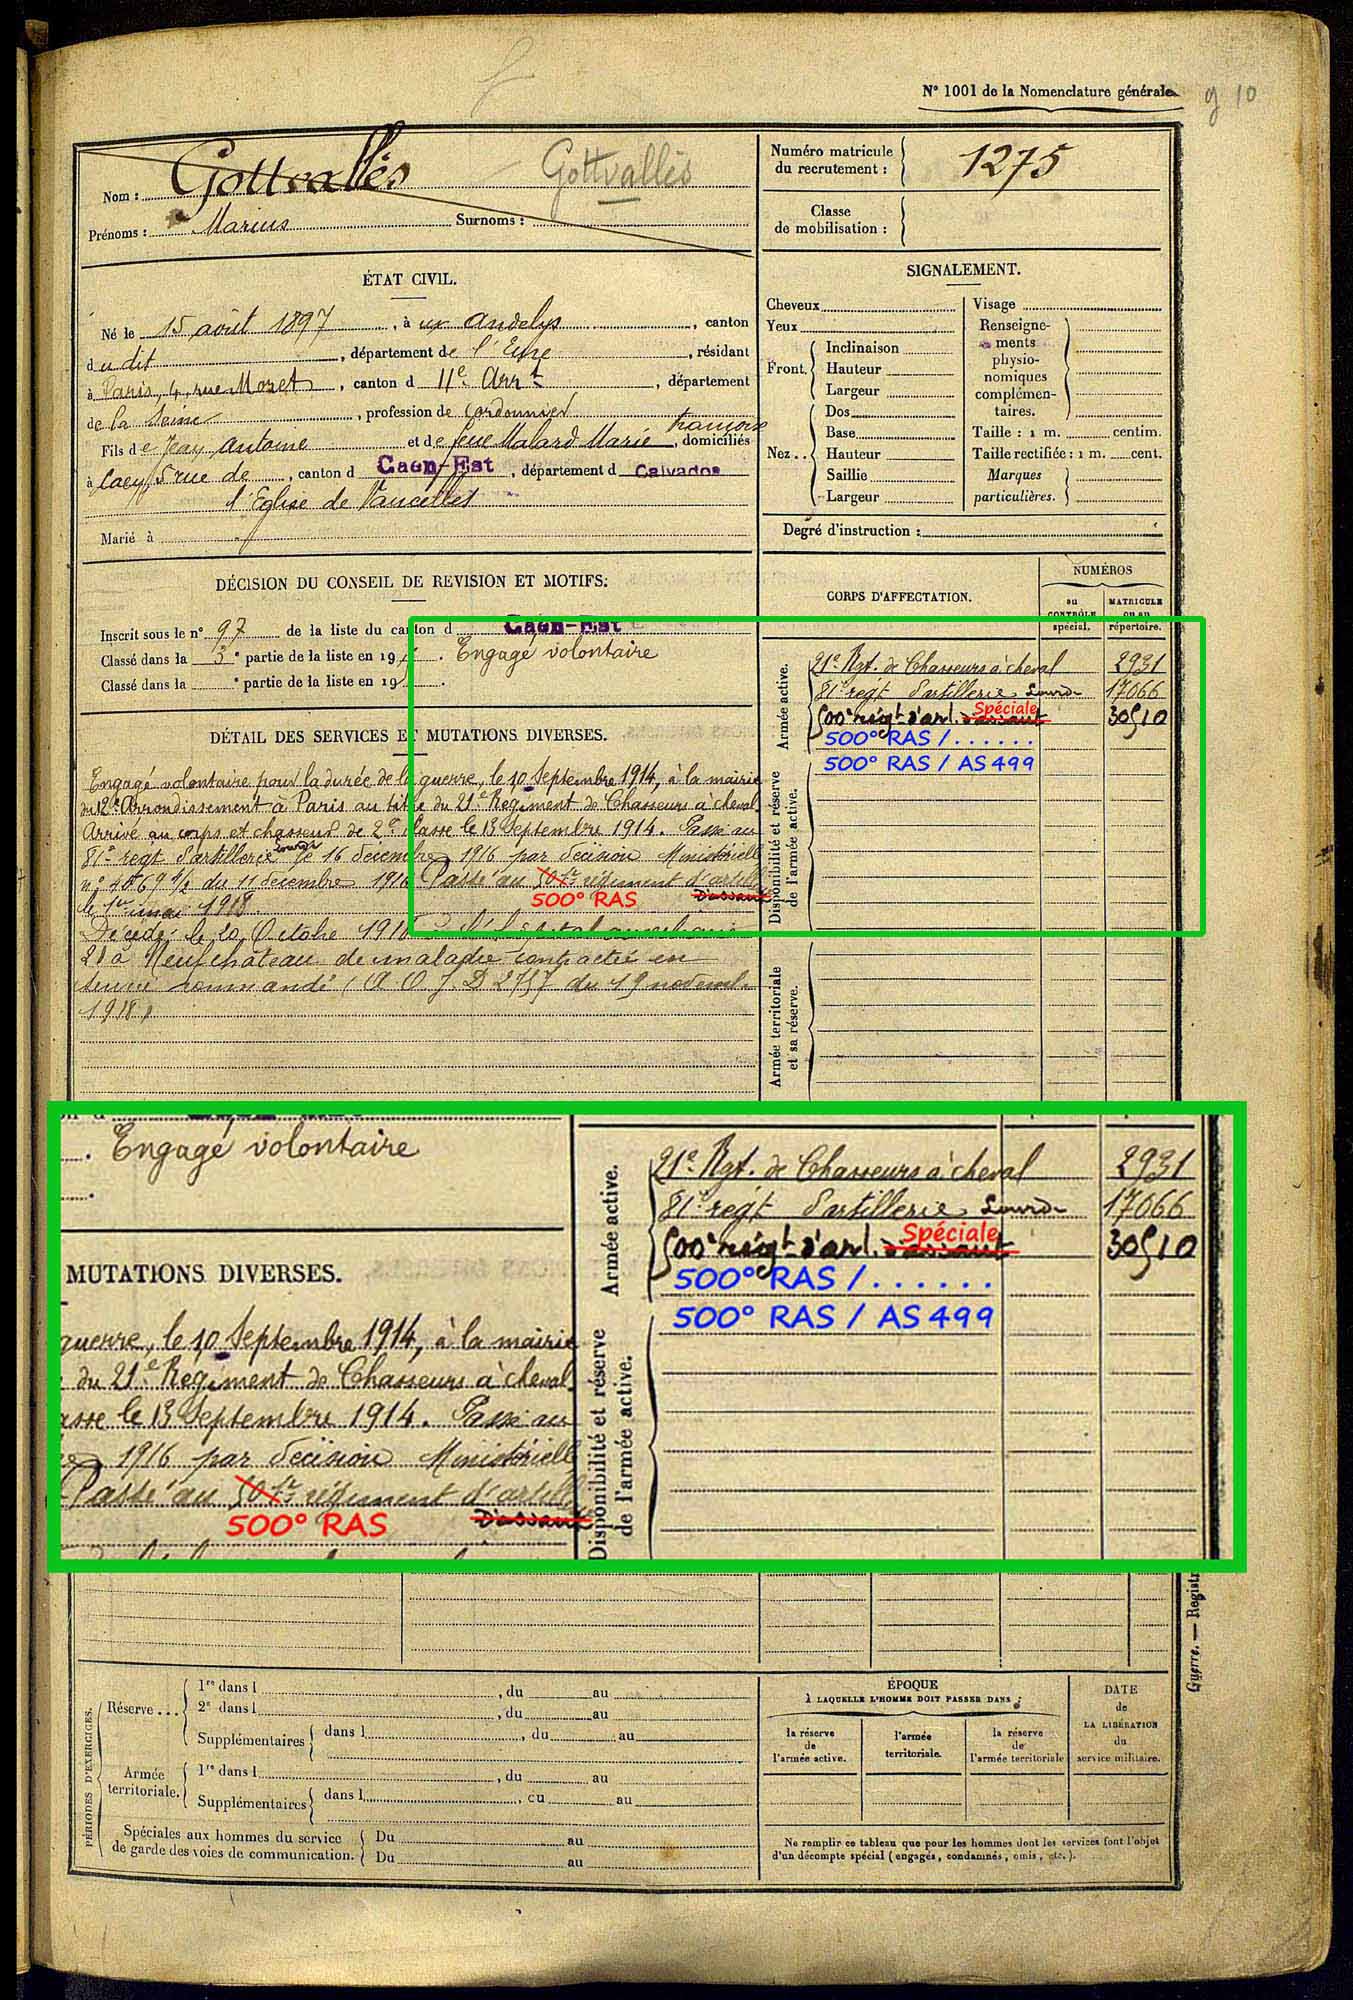 N° 1001 de la Nomenclature générale.
g 10
Nom : Gottvallès Gottvallès
Prénoms : Marius Surnoms :
Numéro matricule du recrutement : 1275
Classe de mobilisation :
ÉTAT CIVIL.
Né le 15 août 1897, à ux Andelys, canton
dudit, département de l'Eure, résidant
à Paris, 4, rue Moret, canton d 11e Arrt, département
de la Seine, profession de Cordonnier
Fils de Jean Antoine et de feue Malard Marie françoise, domiciliés
à Caen, 5 rue de, canton d Caen-Est, département d Calvados
l'Eglise de Vaucelles
Marié à
SIGNALEMENT.
Cheveux
Yeux
Front.
Inclinaison
Hauteur
Largeur
Nez..
Dos
Base
Hauteur
Saillie
Largeur
Visage
Renseigne-
ments
physio-
nomiques
complémen-
taires.
Taille : 1 m. centim.
Taille rectifiée : 1 m. cent.
Marques
particulières.
Degré d'instruction :
DÉCISION DU CONSEIL DE REVISION ET MOTIFS.
Inscrit sous le n° 97 de la liste du canton d Caen-Est
Classé dans la 3e partie de la liste en 19 . Engagé volontaire
Classé dans la e partie de la liste en 19 .
CORPS D'AFFECTATION.
NUMÉROS
au CONTRÔLE spécial.
MATRICULE ou au répertoire.
Armée active.
21e Rgt. de Chasseurs à cheval 2931
81e régt d'artillerie Lourde 17066
500e régt d'art. d'assaut Spéciale 30510
500° RAS / . . . . . .
500° RAS / AS 499
Disponibilité et réserve de l'armée active.
Armée territoriale et sa réserve.
DÉTAIL DES SERVICES ET MUTATIONS DIVERSES.
Engagé volontaire pour la durée de la guerre, le 10 Septembre 1914, à la mairie
du 12e Arrondissement à Paris au titre du 21e Régiment de Chasseurs à cheval.
Arrivé au corps et chasseur de 2e classe le 13 Septembre 1914. Passé au
81e régt d'artillerie lourde le 16 décembre 1916 par décision Ministérielle
du 11 décembre 1916 Passé au 501e régiment d'artill
D'assaut
500° RAS
le 1er mai 1918
Décédé le 20 Octobre 1918 à l'hôpital
20 à Neufchâteau de maladie contractée en
service commandé (A. O. J. D 2757 du 19 novembre
1918)
Engagé volontaire
MUTATIONS DIVERSES.
guerre, le 10 Septembre 1914, à la mairie
du 21e Régiment de Chasseurs à cheval.
asse le 13 Septembre 1914. Passé au
1916 par décision Ministérielle
Passé au 501e régiment d'artill
500° RAS D'assaut
Armée active.
21e Rgt. de Chasseurs à cheval 2931
81e régt d'artillerie Lourde 17066
500e régt d'art. d'assaut Spéciale 30510
500° RAS / . . . . . .
500° RAS / AS 499
Disponibilité et réserve de l'armée active.
Guerre. — Registr
PÉRIODES D'EXERCICES.
Réserve ...
1re dans l , du au
2e dans l , du au
Supplémentaires dans l , du au
Armée territoriale.
1re dans l , du au
Supplémentaires dans l , cu au
Spéciales aux hommes du service
de garde des voies de communication.
Du au
Du au
ÉPOQUE
À LAQUELLE L'HOMME DOIT PASSER DANS :
la réserve de l'armée active.
l'armée territoriale.
la réserve de l'armée territoriale
DATE de LA LIBÉRATION du service militaire.
Ne remplir ce tableau que pour les hommes dont les services font l'objet
d'un décompte spécial (engagés, condamnés, omis, etc.).